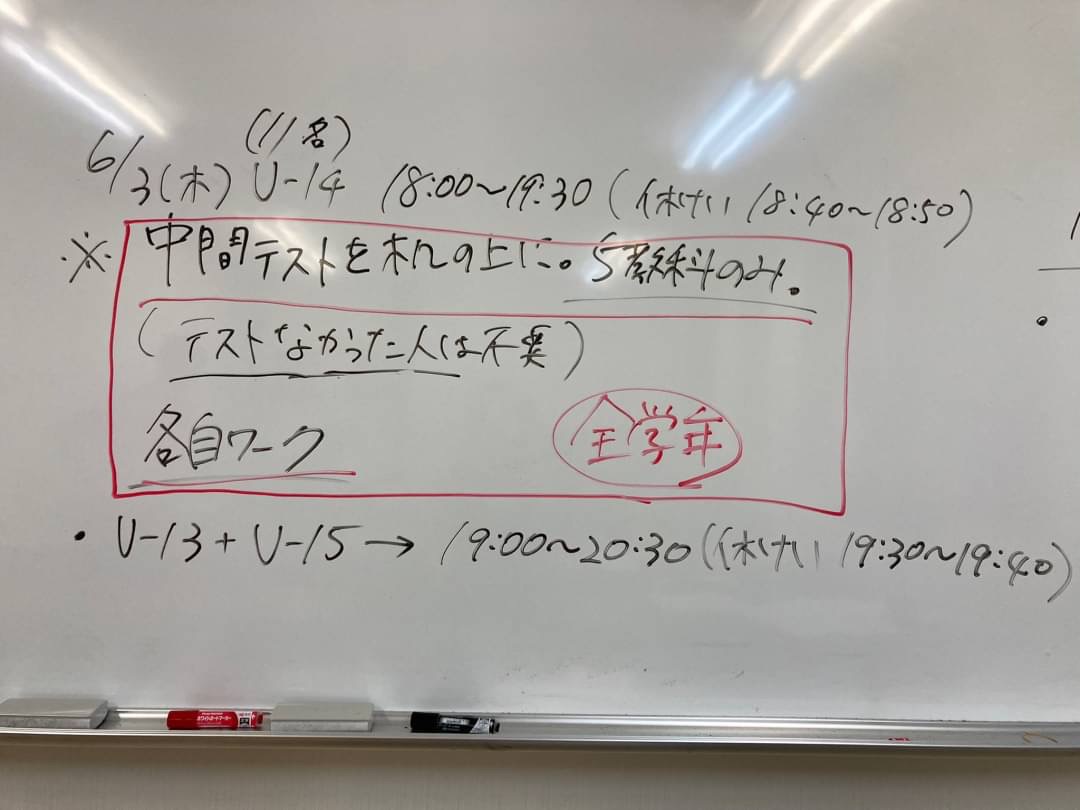 (11名)
6/3(木) U-14 18:00〜19:30 (休けい 18:40〜18:50)
※ 中間テストを机の上に。5教科のみ。
(テストなかった人は不要)
各自ワーク 全学年
・U-13+U-15→ 19:00〜20:30(休けい 19:30〜19:40)
ホワイトボードマーカー